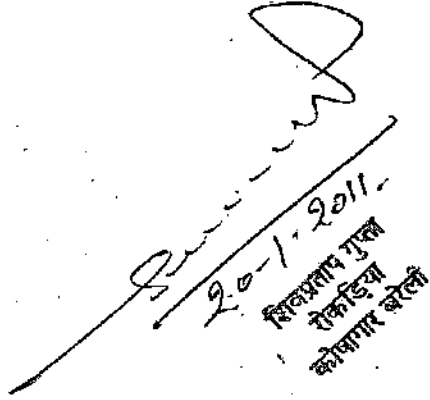 20-1-2011.
शिवप्रताप गुप्ता
रोकड़िया
कोषागार बरेली